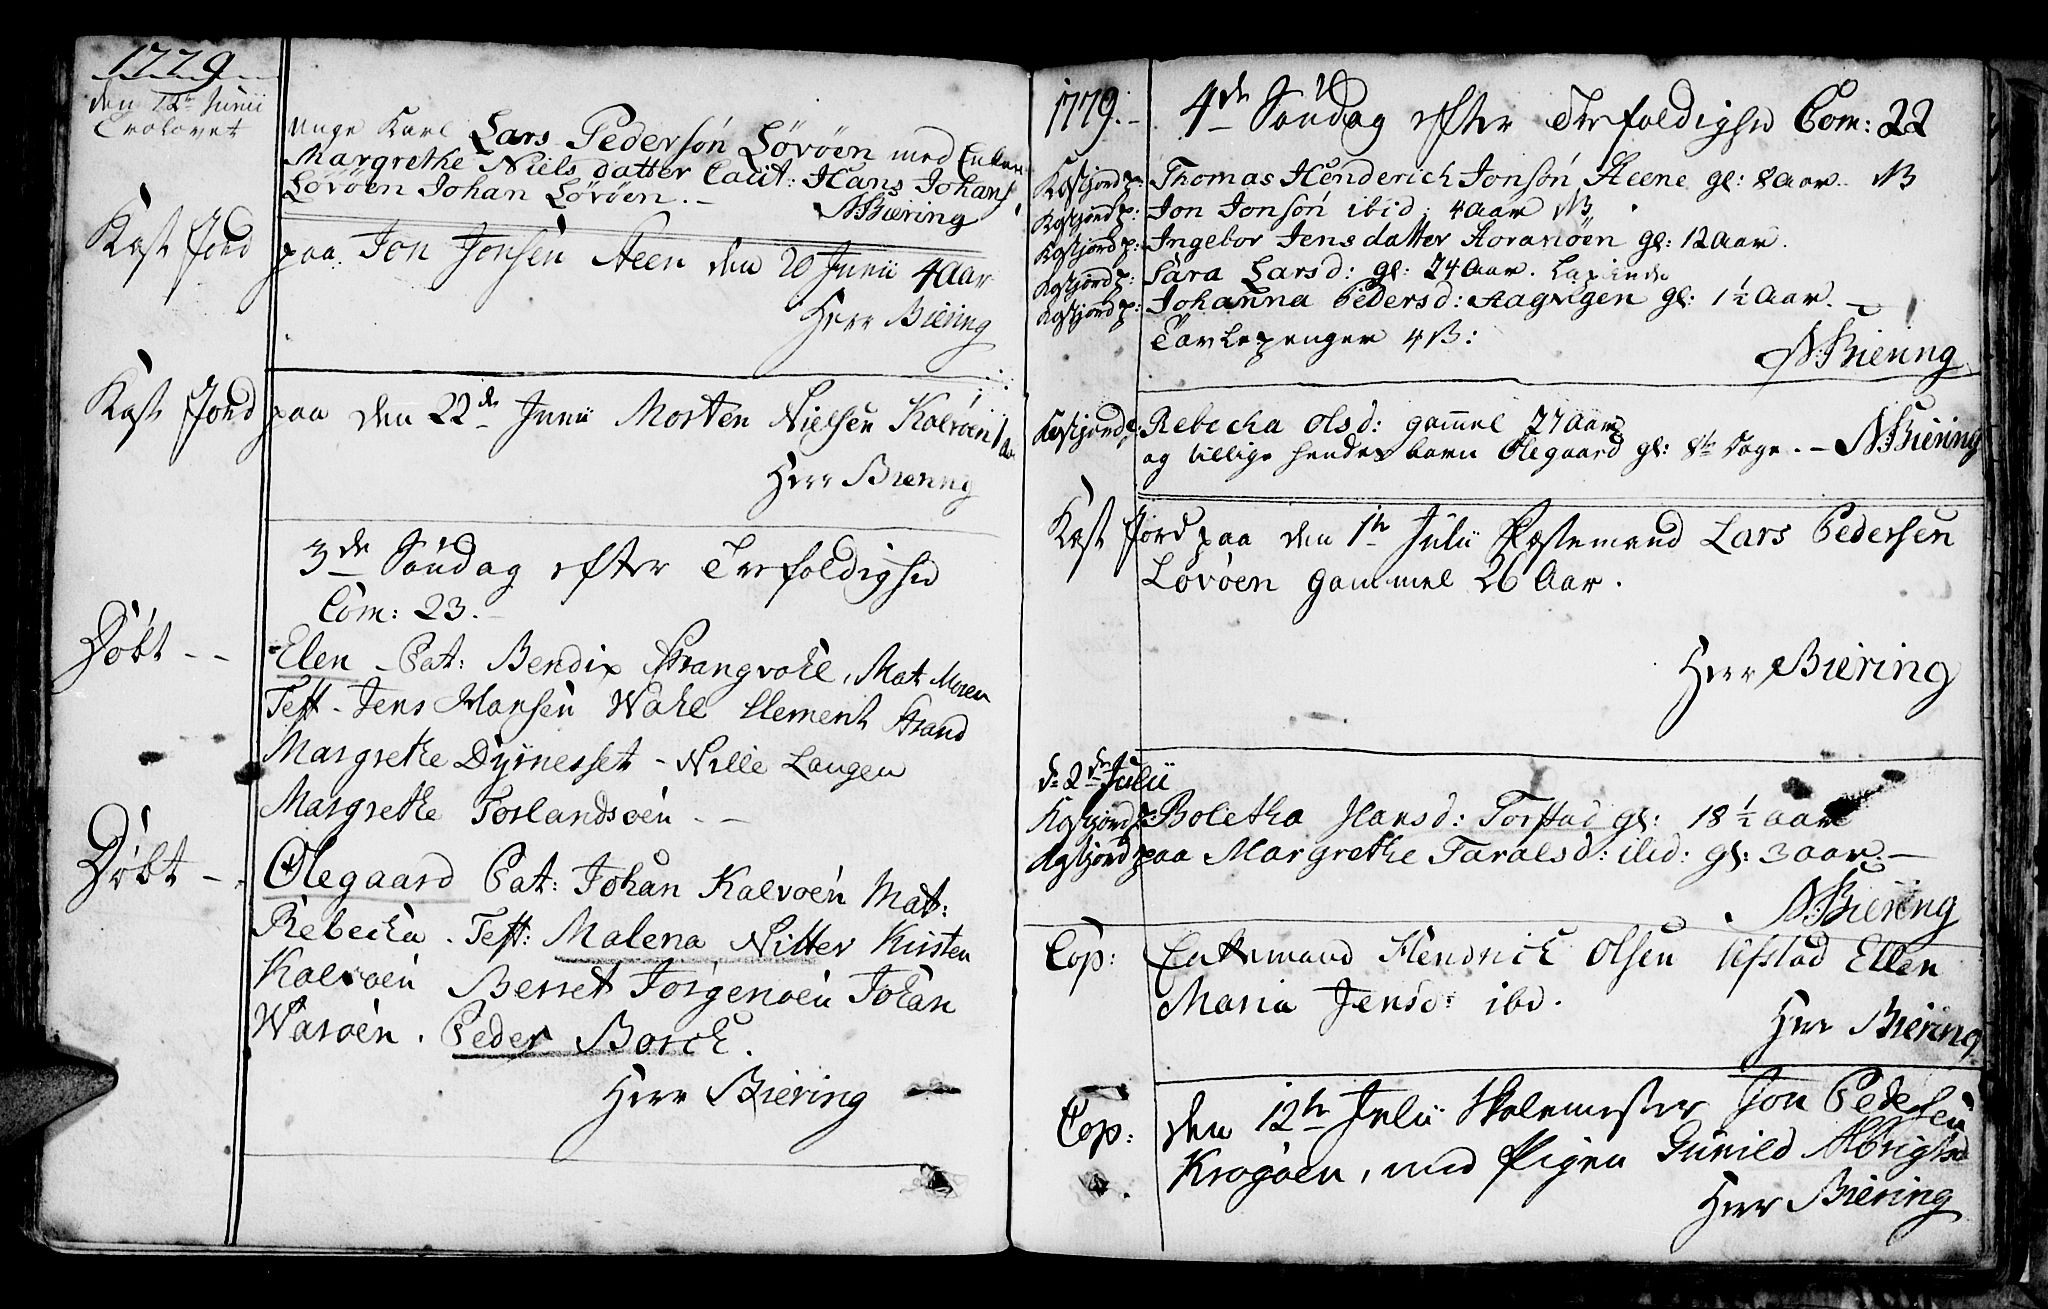 1779
den 12te Junii
Trolovet
unge Karl Lars Pedersøn Løvøen med Enken
Margrethe Niels datter Caut: Hans Johans
Løvøen Johan Løvøen. –
N Biering
Kast Jord paa Jon Jonsen Steen den 20 Junii 4 Aar
Herr Biering
Kast Jord paa den 22de Junii Morten Nielsen Kalvøen 1 Aar
Herr Biering
3de Søndag efter Trefoldighed
Com: 23.
Døbt – – Elen – Pat: Bendix Strangvohl, Mat Maren
Test – Jens Hansen Wahl Clement Strand
Margrethe Dyrnesset – Nille Langen
Margrethe Torlandsøen – –
Døbt – . Olegaard Pat: Johan Kalvøen Mat:
Rebecka . Test: Malena Nitter Kirsten
Kalvøen Berret Jørgenøen Johan
Warøen . Peder Borck.
Herr Biering
1779. – 4de Søndag efter Trefoldighed Com: 22
Kastjord p: Thomas Henderich Jonsøn Steene gl: 8 Aar. NB
Kastjord p: Jon Jonsøn ibid: 4 Aar NB
Kastjord p: Ingebor Jensdatter gl: 12 Aar.
Kastjord p: Sara Larsd: gl: 24 Aar. Lapinde
Kastjord p: Johanna Pedersd: Aagvigen gl: 1½ Aar. –
Tavlepenger 4 ß:
N: Biering
Kastjord p: Rebecka Olsd: gammel 27 Aar
og tillige hendes barn Olegaard gl: 8te Dage. – N Biering
Kast Jord paa den 1te Julii Fæstemand Lars Pedersen
Løvøen gammel 26 Aar.
Herr Biering
d: 2den Julii
Kastjord p: Boletha Hansd: Torstad gl: 18½ aar
Kastjord paa Margrethe Taralsd: ibid: gl: 3 aar. –
N: Biering
Cop: Enkemand Hendrich Olsen Ufstad Ellen
Maria Jensd: ibd.
Herr Biering
Cop: den 12te Julii Skolemester Jon Pedersen
Krogøen, med Pigen Gunild Albrigtsd
Herr Biering